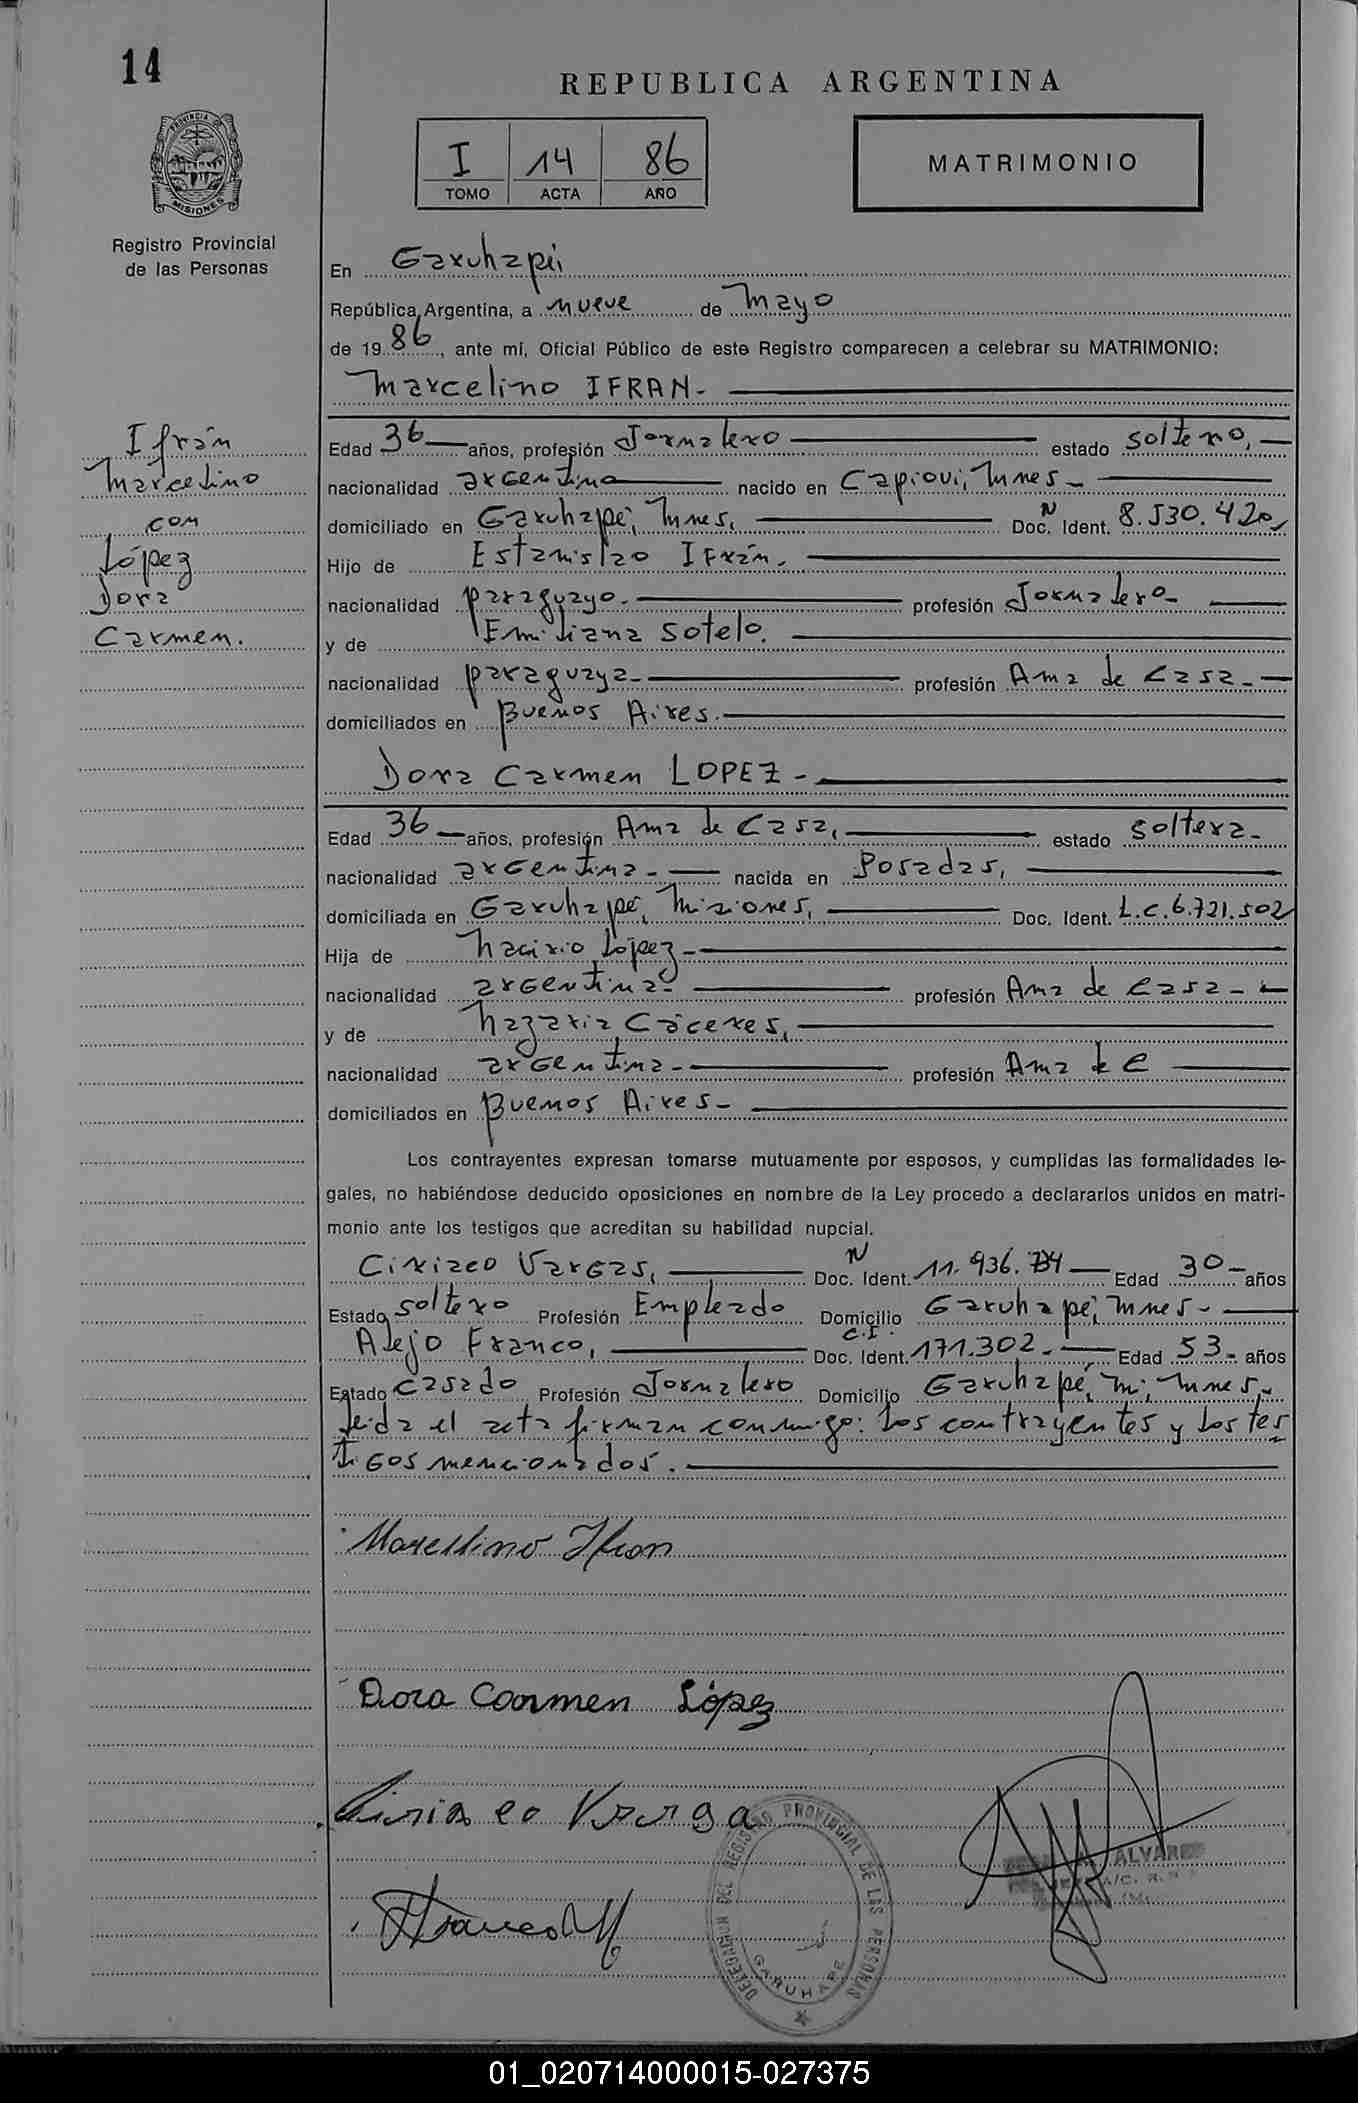 14
REPUBLICA ARGENTINA
I 14 86
TOMO ACTA AÑO
MATRIMONIO
PROVINCIA DE
MISIONES
Registro Provincial
de las Personas
En Garuhapé
República Argentina, a nueve de Mayo
de 1986, ante mí, Oficial Público de este Registro comparecen a celebrar su MATRIMONIO:
Marcelino IFRAN.-
Ifrán
Marcelino
con
López
Dora
Carmen.
Edad 36 años, profesión Jornalero estado soltero,
nacionalidad argentina nacido en Capioví, Mnes-
domiciliado en Garuhapé, Mnes, Doc. Ident. N 8.530.420,
Hijo de Estanislao Ifrán.
nacionalidad paraguayo.- profesión Jornalero-
y de Emiliana Sotelo.
nacionalidad paraguaya- profesión Ama de Casa-
domiciliados en Buenos Aires.
Dora Carmen LOPEZ-
Edad 36 años, profesión Ama de Casa, estado soltera-
nacionalidad argentina- nacida en Posadas,
domiciliada en Garuhapé, Misiones, Doc. Ident. L.C.6.721.502
Hija de López-
nacionalidad argentina- profesión Ama de Casa-
y de Nazaria Cáceres,
nacionalidad argentina- profesión Ama de C
domiciliados en Buenos Aires-
Los contrayentes expresan tomarse mutuamente por esposos, y cumplidas las formalidades le-
gales, no habiéndose deducido oposiciones en nombre de la Ley procedo a declararlos unidos en matri-
monio ante los testigos que acreditan su habilidad nupcial.
Ciriaco Vargas, Doc. Ident. N 11.936. Edad 30- años
Estado soltero Profesión Empleado Domicilio Garuhapé, Mnes-
Alejo Franco, Doc. Ident. C.I. 171.302.- Edad 53- años
Estado casado Profesión Jornalero Domicilio Garuhapé, Mnes,-
Leida el acta firman conmigo: los contrayentes y los tes
tigos mencionados.
Marcelino Ifran
Dora Carmen López
Ciriaco Varga
DELEGACION DEL REGISTRO PROVINCIAL DE LAS PERSONAS
GARUHAPE
ALVAREZ
A/C. R.
01_020714000015-027375